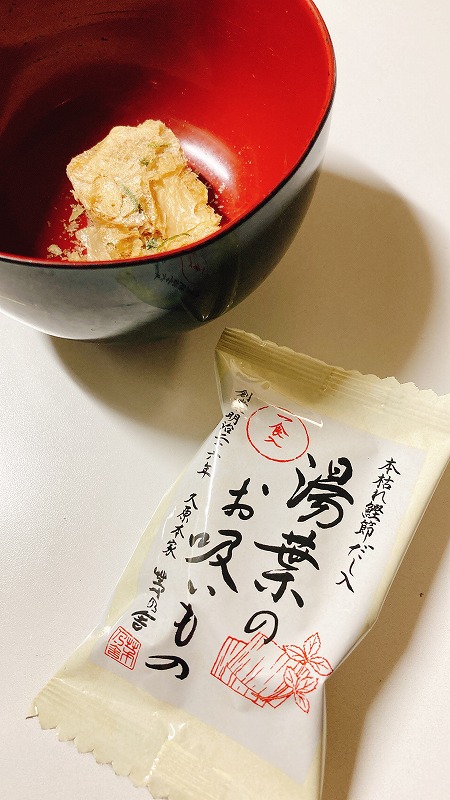 本枯れ鰹節だし入
湯葉の
お吸いもの
一食入
創業明治二六年
久原本家
茅乃舎